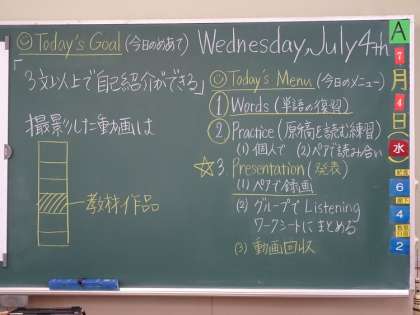 Today's Goal (今日のめあて)
Wednesday, July 4th
「3文以上で自己紹介ができる」
撮影した動画は
教材作品
Today's Menu (今日のメニュー)
① Words (単語の復習)
② Practice (原稿を読む練習)
(1) 個人で (2) ペアで読み合い
☆3. Presentation (発表)
(1) ペアで録画
(2) グループでListening
ワークシートにまとめる
(3) 動画回収
A
7
月
4
日
水
6
4
2